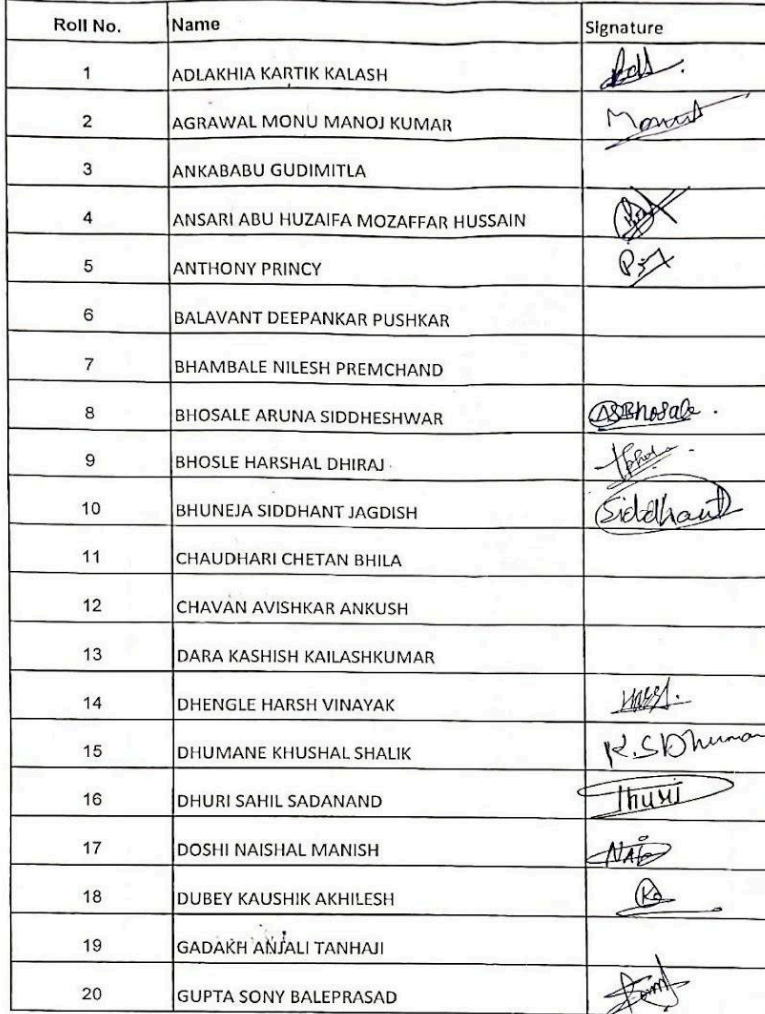 Roll No. Name Signature
1 ADLAKHIA KARTIK KALASH
2 AGRAWAL MONU MANOJ KUMAR
3 ANKABABU GUDIMITLA
4 ANSARI ABU HUZAIFA MOZAFFAR HUSSAIN
5 ANTHONY PRINCY
6 BALAVANT DEEPANKAR PUSHKAR
7 BHAMBALE NILESH PREMCHAND
8 BHOSALE ARUNA SIDDHESHWAR ASBhosale.
9 BHOSLE HARSHAL DHIRAJ
10 BHUNEJA SIDDHANT JAGDISH Siddhant
11 CHAUDHARI CHETAN BHILA
12 CHAVAN AVISHKAR ANKUSH
13 DARA KASHISH KAILASHKUMAR
14 DHENGLE HARSH VINAYAK
15 DHUMANE KHUSHAL SHALIK K.SDhuman
16 DHURI SAHIL SADANAND
17 DOSHI NAISHAL MANISH
18 DUBEY KAUSHIK AKHILESH
19 GADAKH ANJALI TANHAJI
20 GUPTA SONY BALEPRASAD